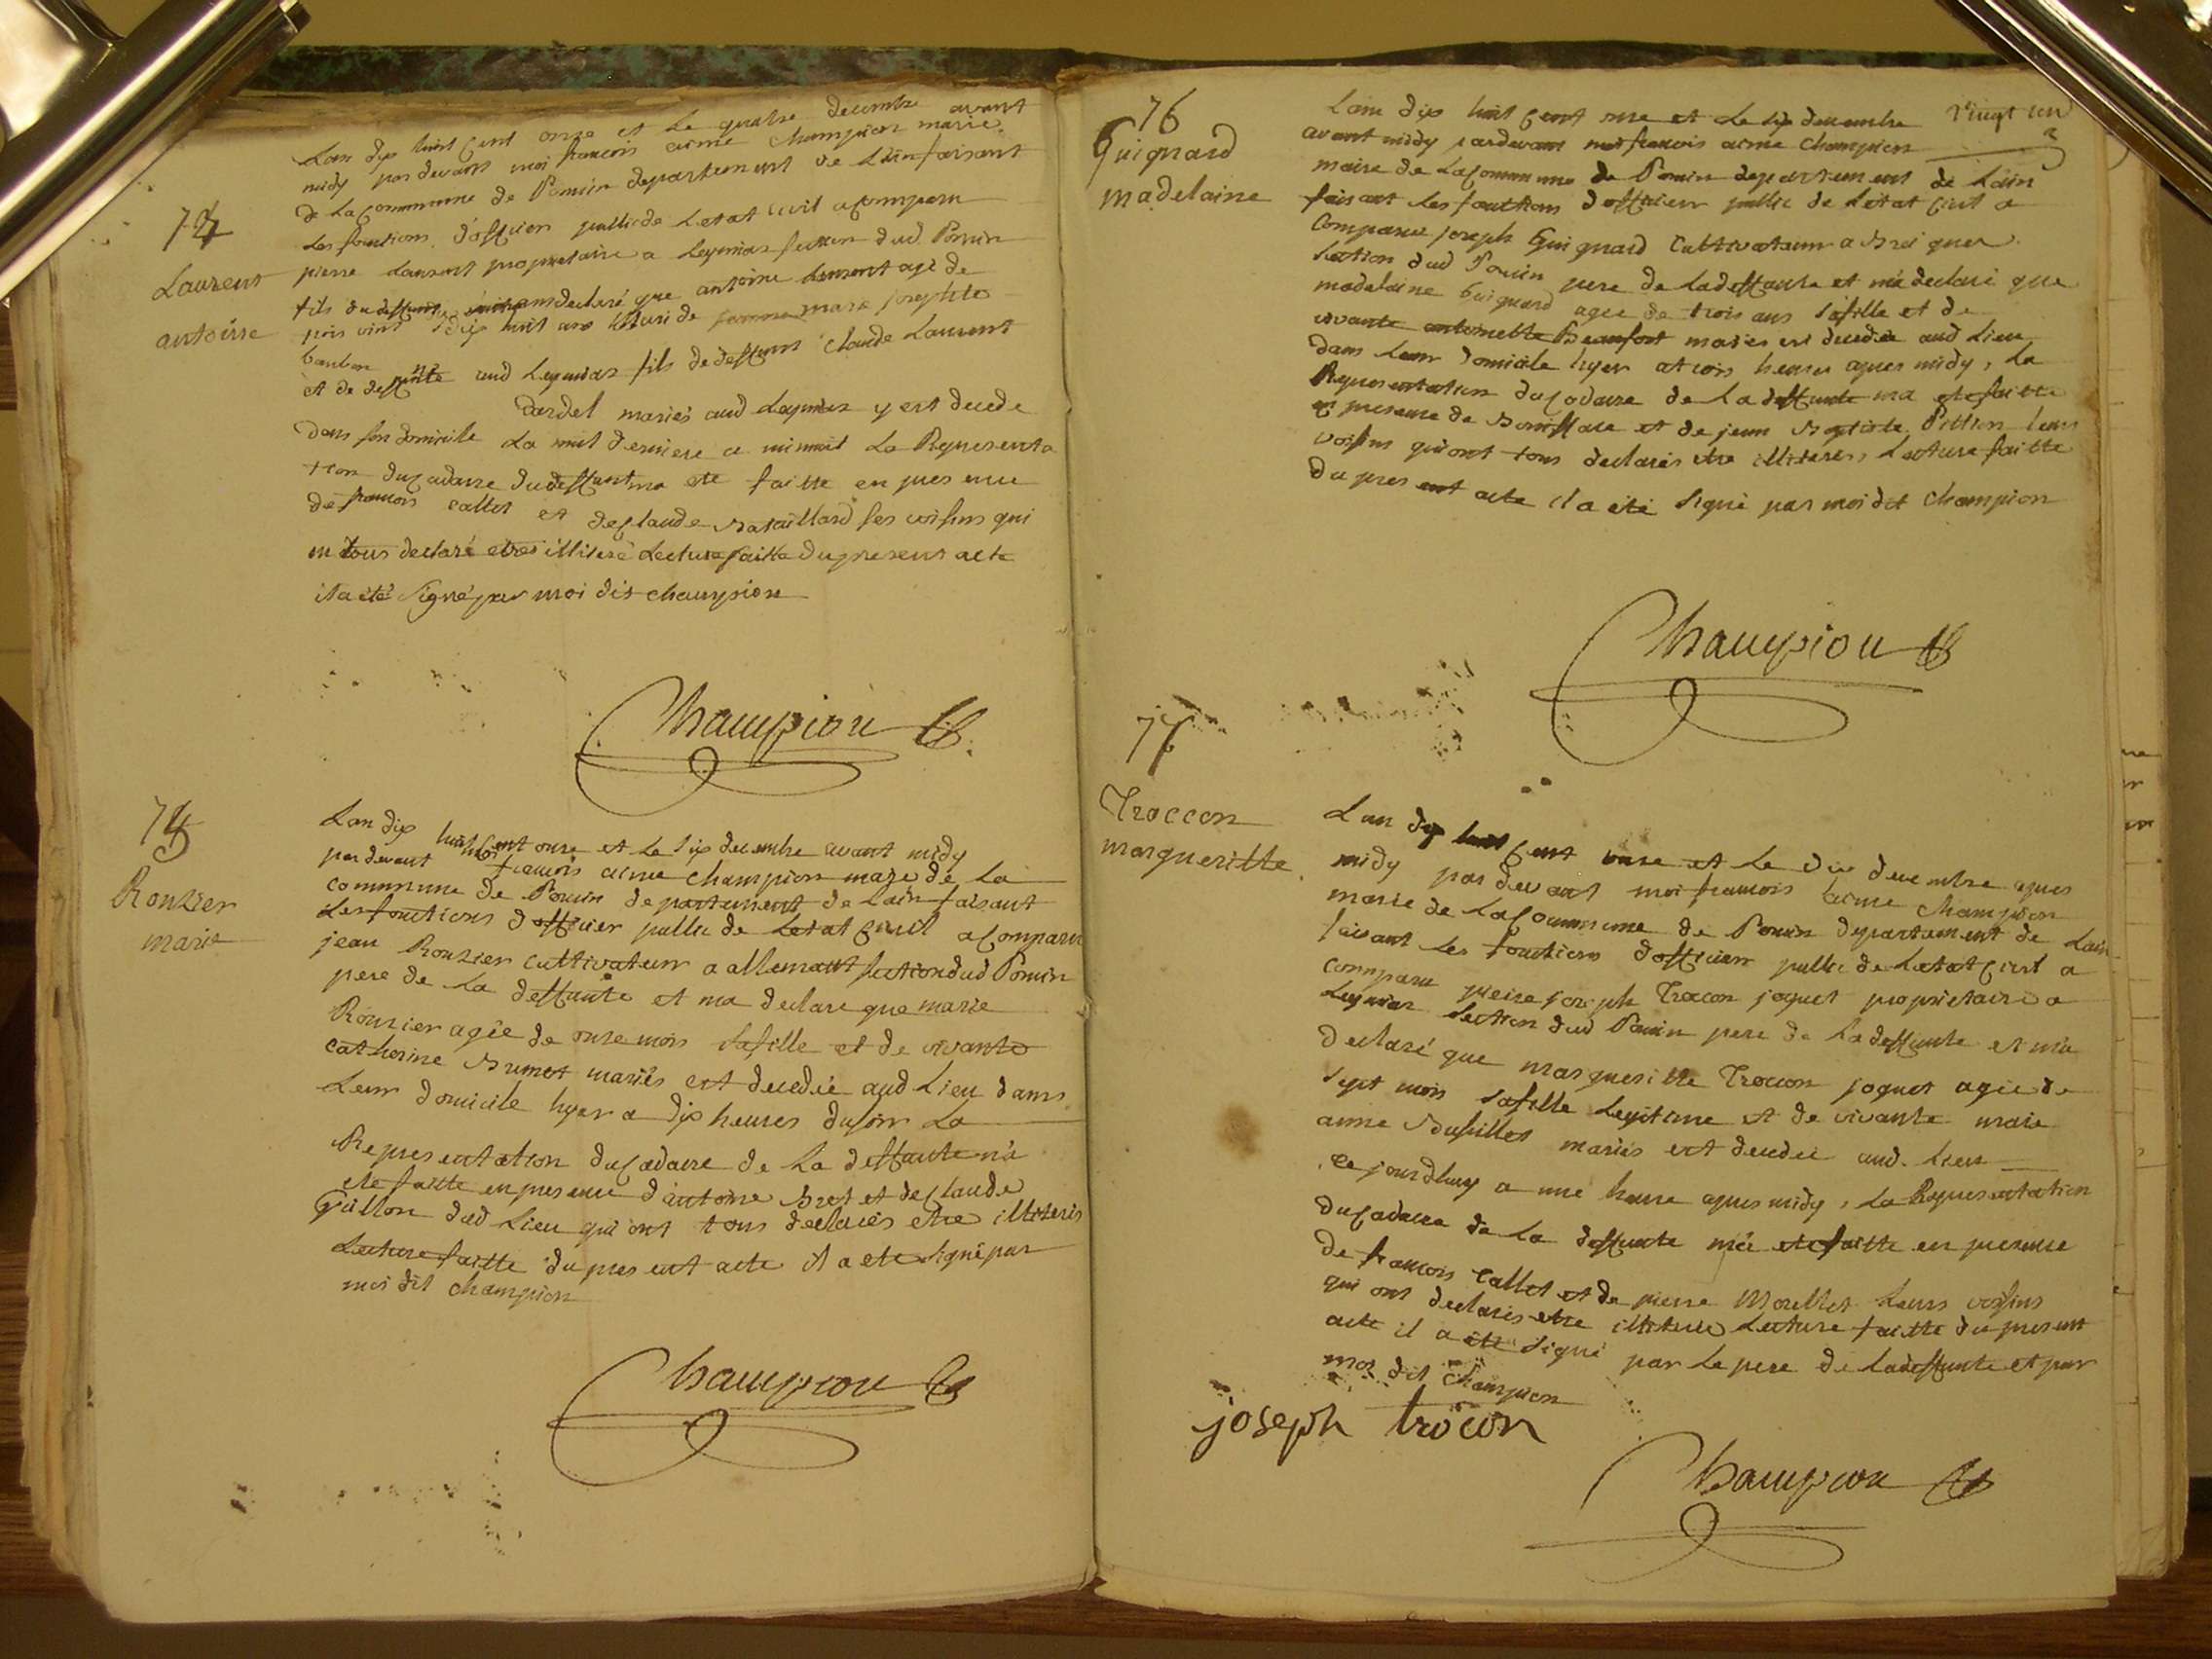 74
Laurent
antoine
Lan dix huit cent onze et le quatre decembre avant
midy par devant moi francois aimé champion maire
de la commune de Poncin departement de Lain faisant
Les fonctions d'officier public de Letat civil a comparu
pierre Laurent proprietaire a Leymiat section dud. Poncin
fils du deffunt declaré que antoine Laurent agé de
dix huit ans mari de marie josephte
aud Leymiat fils de deffunt Claude Laurent
et de deffunte dardel mariés aud Leymiat y est decede
dans son domicile La nuit derniere a minuit La Representa
tion du cadavre du deffunt ma eté faitte en presence
de francois callet et de claude Bataillard ses voisins qui
m tous declaré etres illiteré Lecture faitte du present acte
il a été signé par moi dit champion
Champion
75
Rouzier
marie
Lan dix huit cent onze et Le six decembre avant midy
par devant moi francois aimé champion maire de La
commune de Poncin departement de Lain faisant
Les fonctions d'officier public de Letat civil a comparu
jean Rouzier cultivateur a allemant section dud Poncin
pere de La deffunte et ma declare que marie
Rouzier agée de onze mois sa fille et de vivante
catherine Brunet mariés est decedée aud Lieu dans
Leur domicile hyer a dix heures du soir La
Representation du cadavre de La deffunte m'a
ete faitte en presence d'antoine Bret et de claude
Guillon dud Lieu qui ont tous declarés etre illiterés
Lecture faitte du present acte il a ete signé par
moi dit champion
Champion
vingt un
76
Guignard
madelaine
Lan dix huit cent onze et Le six decembre
avant midy pardevant moi francois aimé champion
maire de La commune de Poncin departement de Lain
faisant Les fonctions d'officier public de Letat civil a
comparu joseph Guignard Cultivateur a Breignes
section dud Poncin pere de La deffunte et m'a declaré que
madelaine Guignard agée de trois ans sa fille et de
vivante antoinette Beaufort mariés est decedée aud Lieu
dans Leur domicile hyer a trois heures apres midy, La
Representation du cadavre de La deffunte ma ete faitte
en presence de Boniface et de jean Baptiste Pittion Leurs
voisins qui ont tous declarés etre illiterés, Lecture faitte
du present acte il a été signé par moi dit champion
Champion
77
Troccon
margueritte
Lan dix huit cent onze et Le dix decembre apres
midy par devant moi francois aimé champion
maire de La Commune de Poncin departement de Lain
faisant Les fonctions d'officier public de Letat civil a
comparu pierre joseph Troccon joguet proprietaire a
Leymiat section dud Poncin pere de La deffunte et m'a
declaré que margueritte Troccon joguet agée de
sept mois sa fille Legitime et de vivante marie
anne Busillet mariés est decedée aud. Lieu
ce jourdhuy a une heure apres midy, La Representation
du cadavre de La deffunte m'a ete faitte en presence
de francois callet et de pierre Morellet Leurs voisins
qui ont declarés etre illiterés Lecture faitte du present
acte il a été signé par Le pere de La deffunte et par
moi dit Champion
joseph trocon
Champion